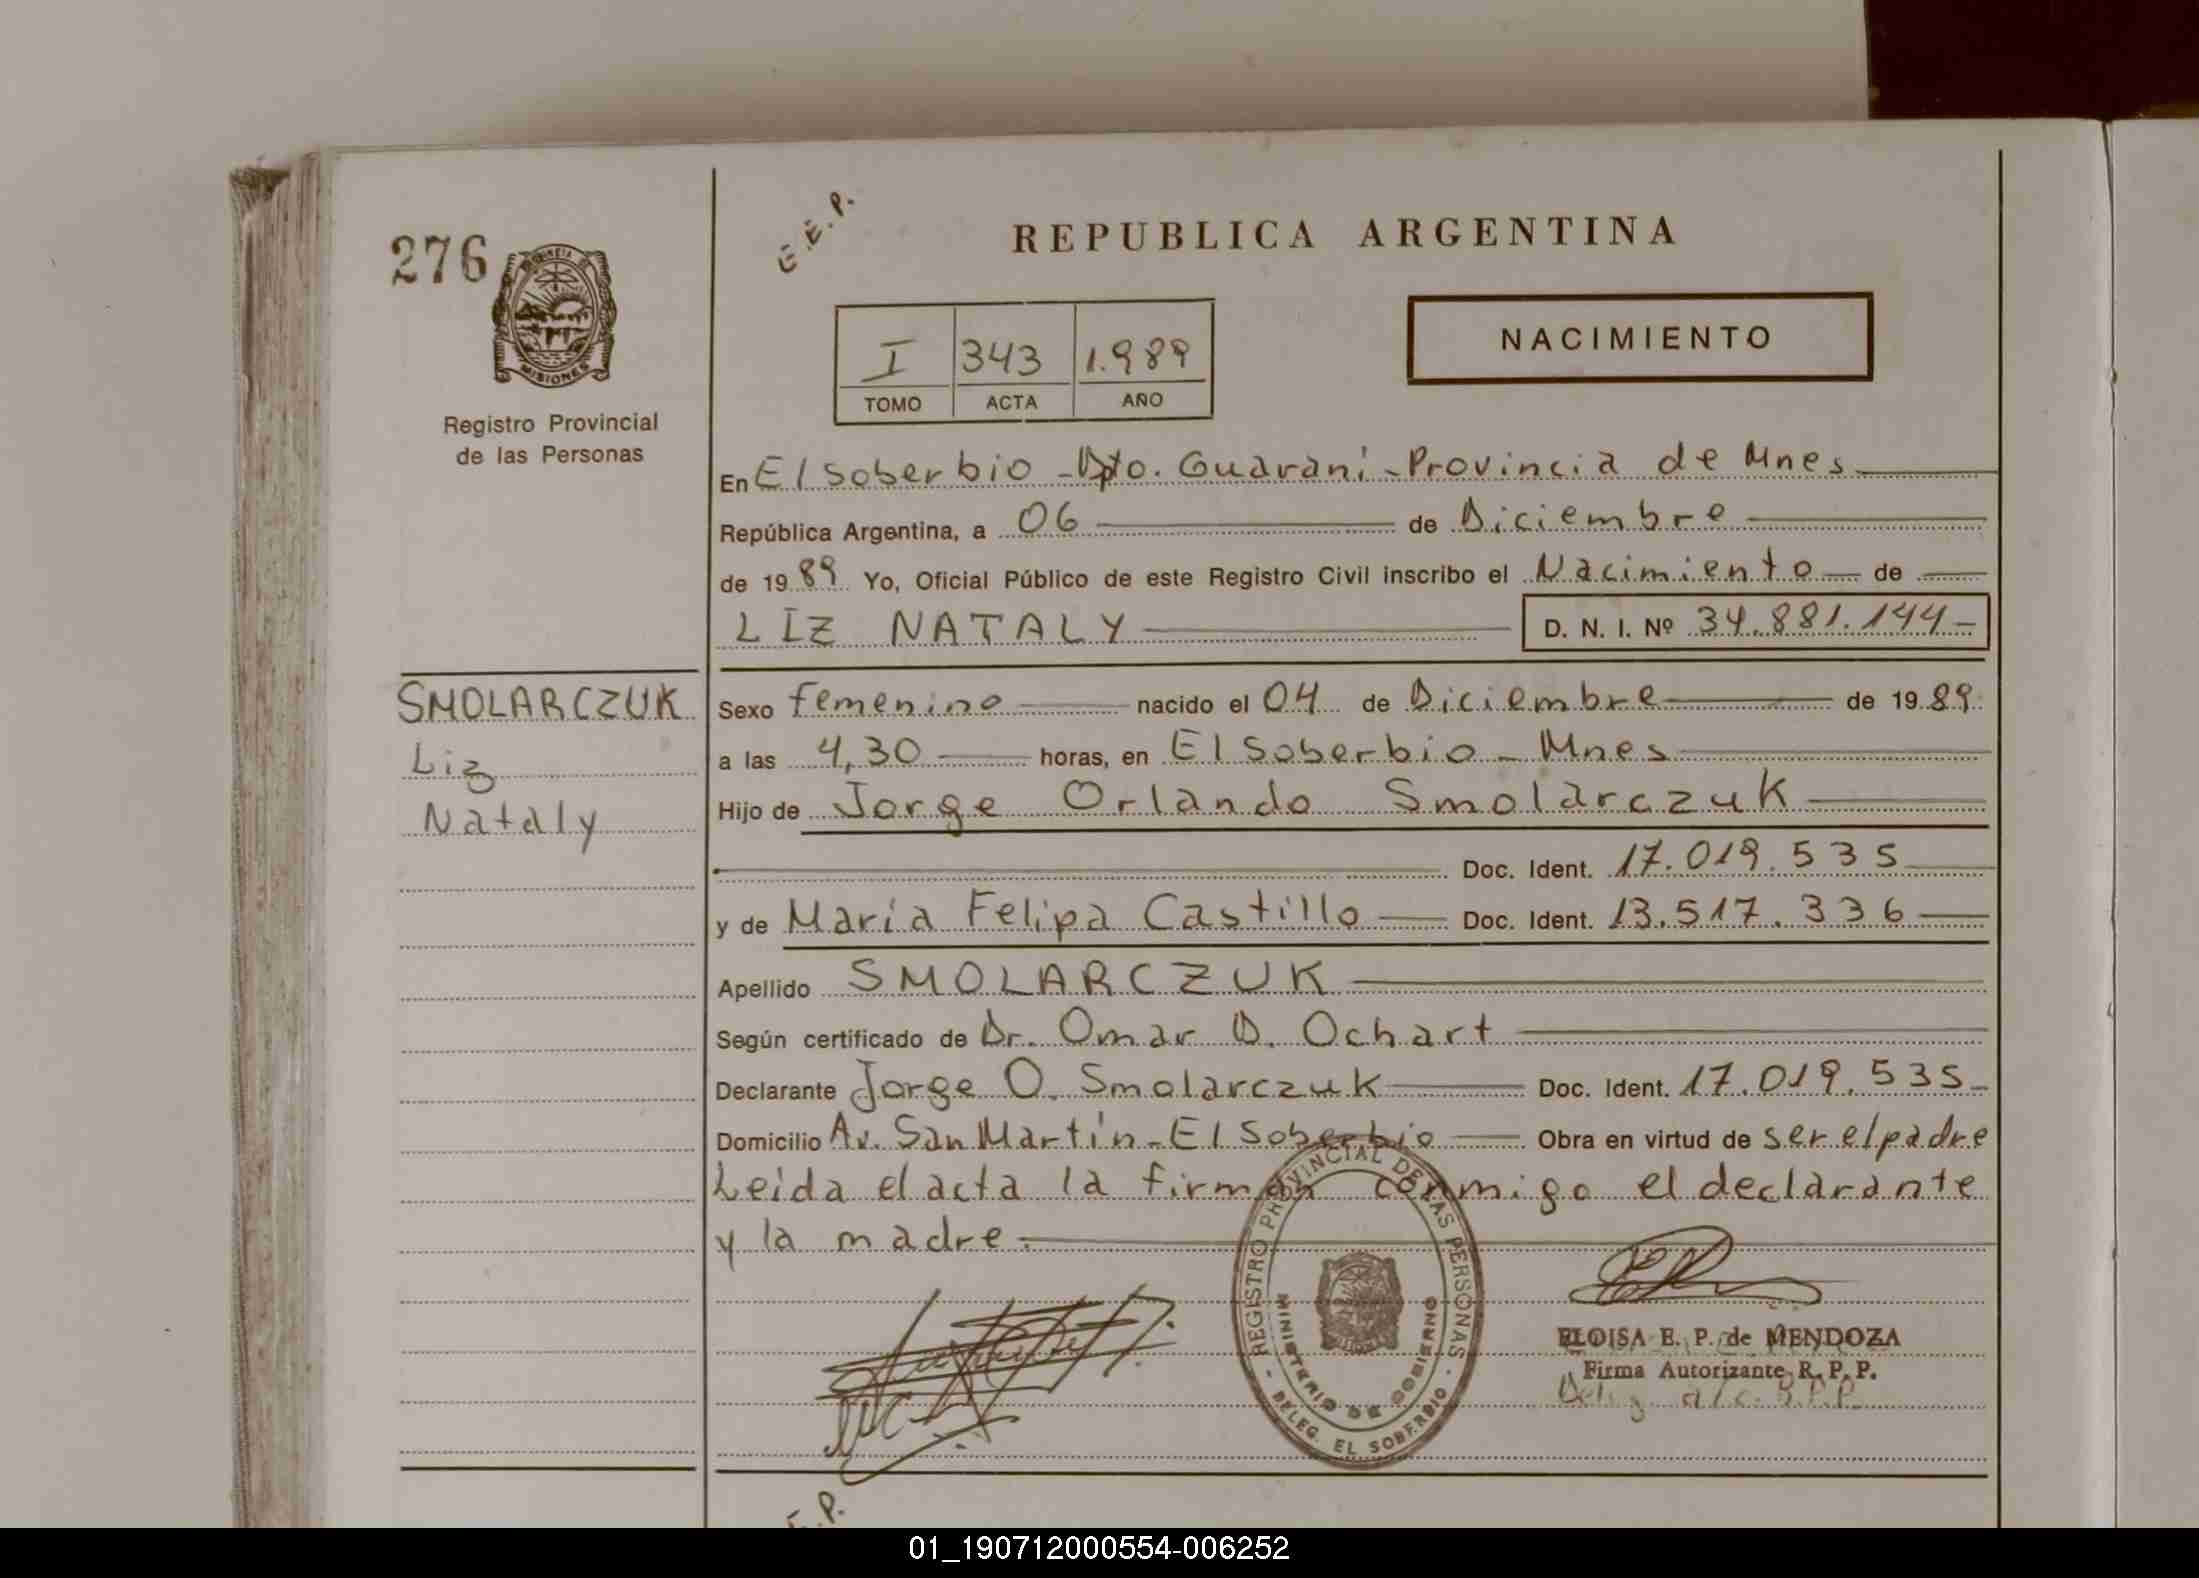 276
PROVINCIA DE
MISIONES
Registro Provincial
de las Personas
SMOLARCZUK
Liz
Nataly
E.E.P.
REPUBLICA ARGENTINA
I 343 1.989
TOMO ACTA AÑO
NACIMIENTO
En El Soberbio - Dpto. Guaraní - Provincia de Mnes
República Argentina, a 06 de Diciembre
de 1989 Yo, Oficial Público de este Registro Civil inscribo el Nacimiento de
LIZ NATALY D. N. I. Nº 34.881.144-
Sexo femenino nacido el 04 de Diciembre de 1989
a las 4,30 horas, en El Soberbio - Mnes
Hijo de Jorge Orlando Smolarczuk
Doc. Ident. 17.019.535
y de María Felipa Castillo Doc. Ident. 13.517.336
Apellido SMOLARCZUK
Según certificado de Dr. Omar D. Ochart
Declarante Jorge O. Smolarczuk Doc. Ident. 17.019.535-
Domicilio Av. San Martín - El Soberbio Obra en virtud de ser el padre
Leida el acta la firman conmigo el declarante
y la madre.
REGISTRO PROVINCIAL DE LAS PERSONAS
MINISTERIO DE GOBIERNO
- DELEG. EL SOBERBIO -
ELOISA E. P. de MENDOZA
Firma Autorizante R. P. P.
a/c. R.P.P.
E.P.
01_190712000554-006252